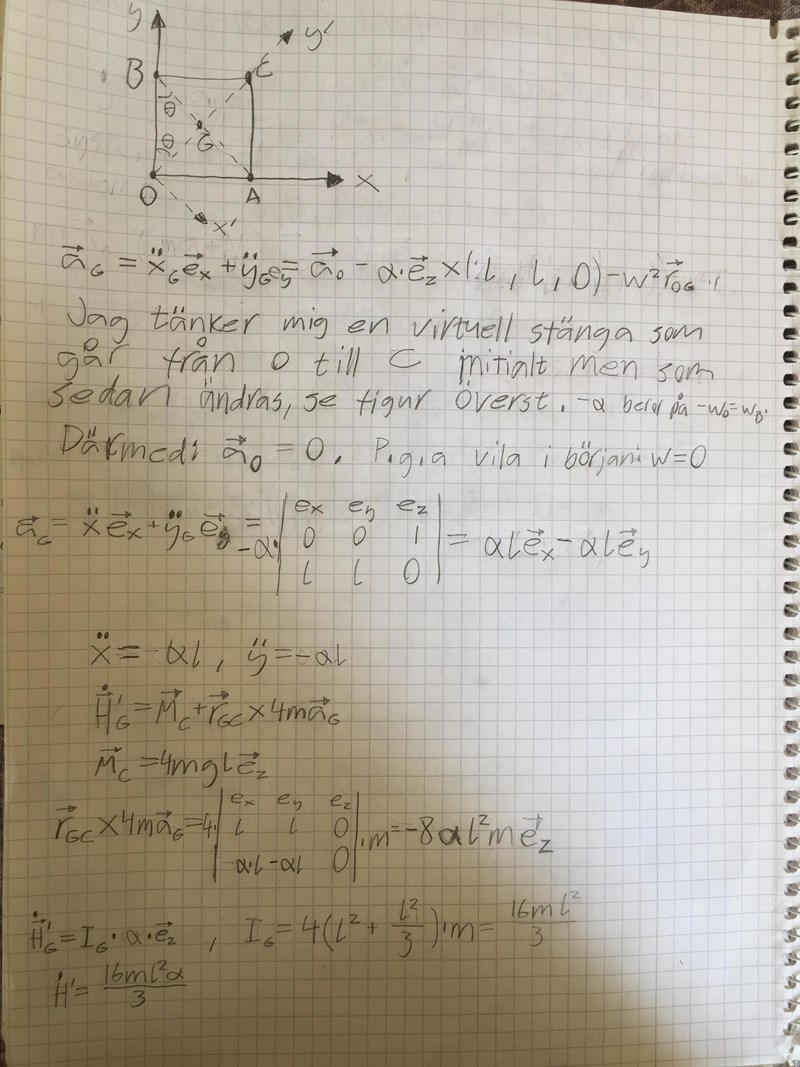 y
y'
B
C
θ
θ
G
O
A
x
x'
a⃗_G = ẍ_G e⃗_x + ÿ_G e⃗_y = a⃗_0 - α·e⃗_z × (L, L, 0) - w² r⃗_OG
Jag tänker mig en virtuell stånga som
går från O till C initialt men som
sedan ändras, se figur överst. -α beror på -w_0=w_B.
Därmed: a⃗_0 = 0. P.g.a vila i början: w=0
a⃗_G = ẍ e⃗_x + ÿ_G e⃗_y = -α· | e_x e_y e_z ; 0 0 1 ; L L 0 | = αL e⃗_x - αL e⃗_y
ẍ = -αL, ÿ = -αL
Ḣ'_G = M⃗_C + r⃗_GC × 4m a⃗_G
M⃗_C = 4mgL e⃗_z
r⃗_GC × 4m a⃗_G = 4· | e_x e_y e_z ; L L 0 ; α·L -αL 0 | ·m = -8αL²m e⃗_z
Ḣ'_G = I_G · α · e⃗_z , I_G = 4(L² + L²/3)·m = 16mL²/3
Ḣ' = 16mL²α/3